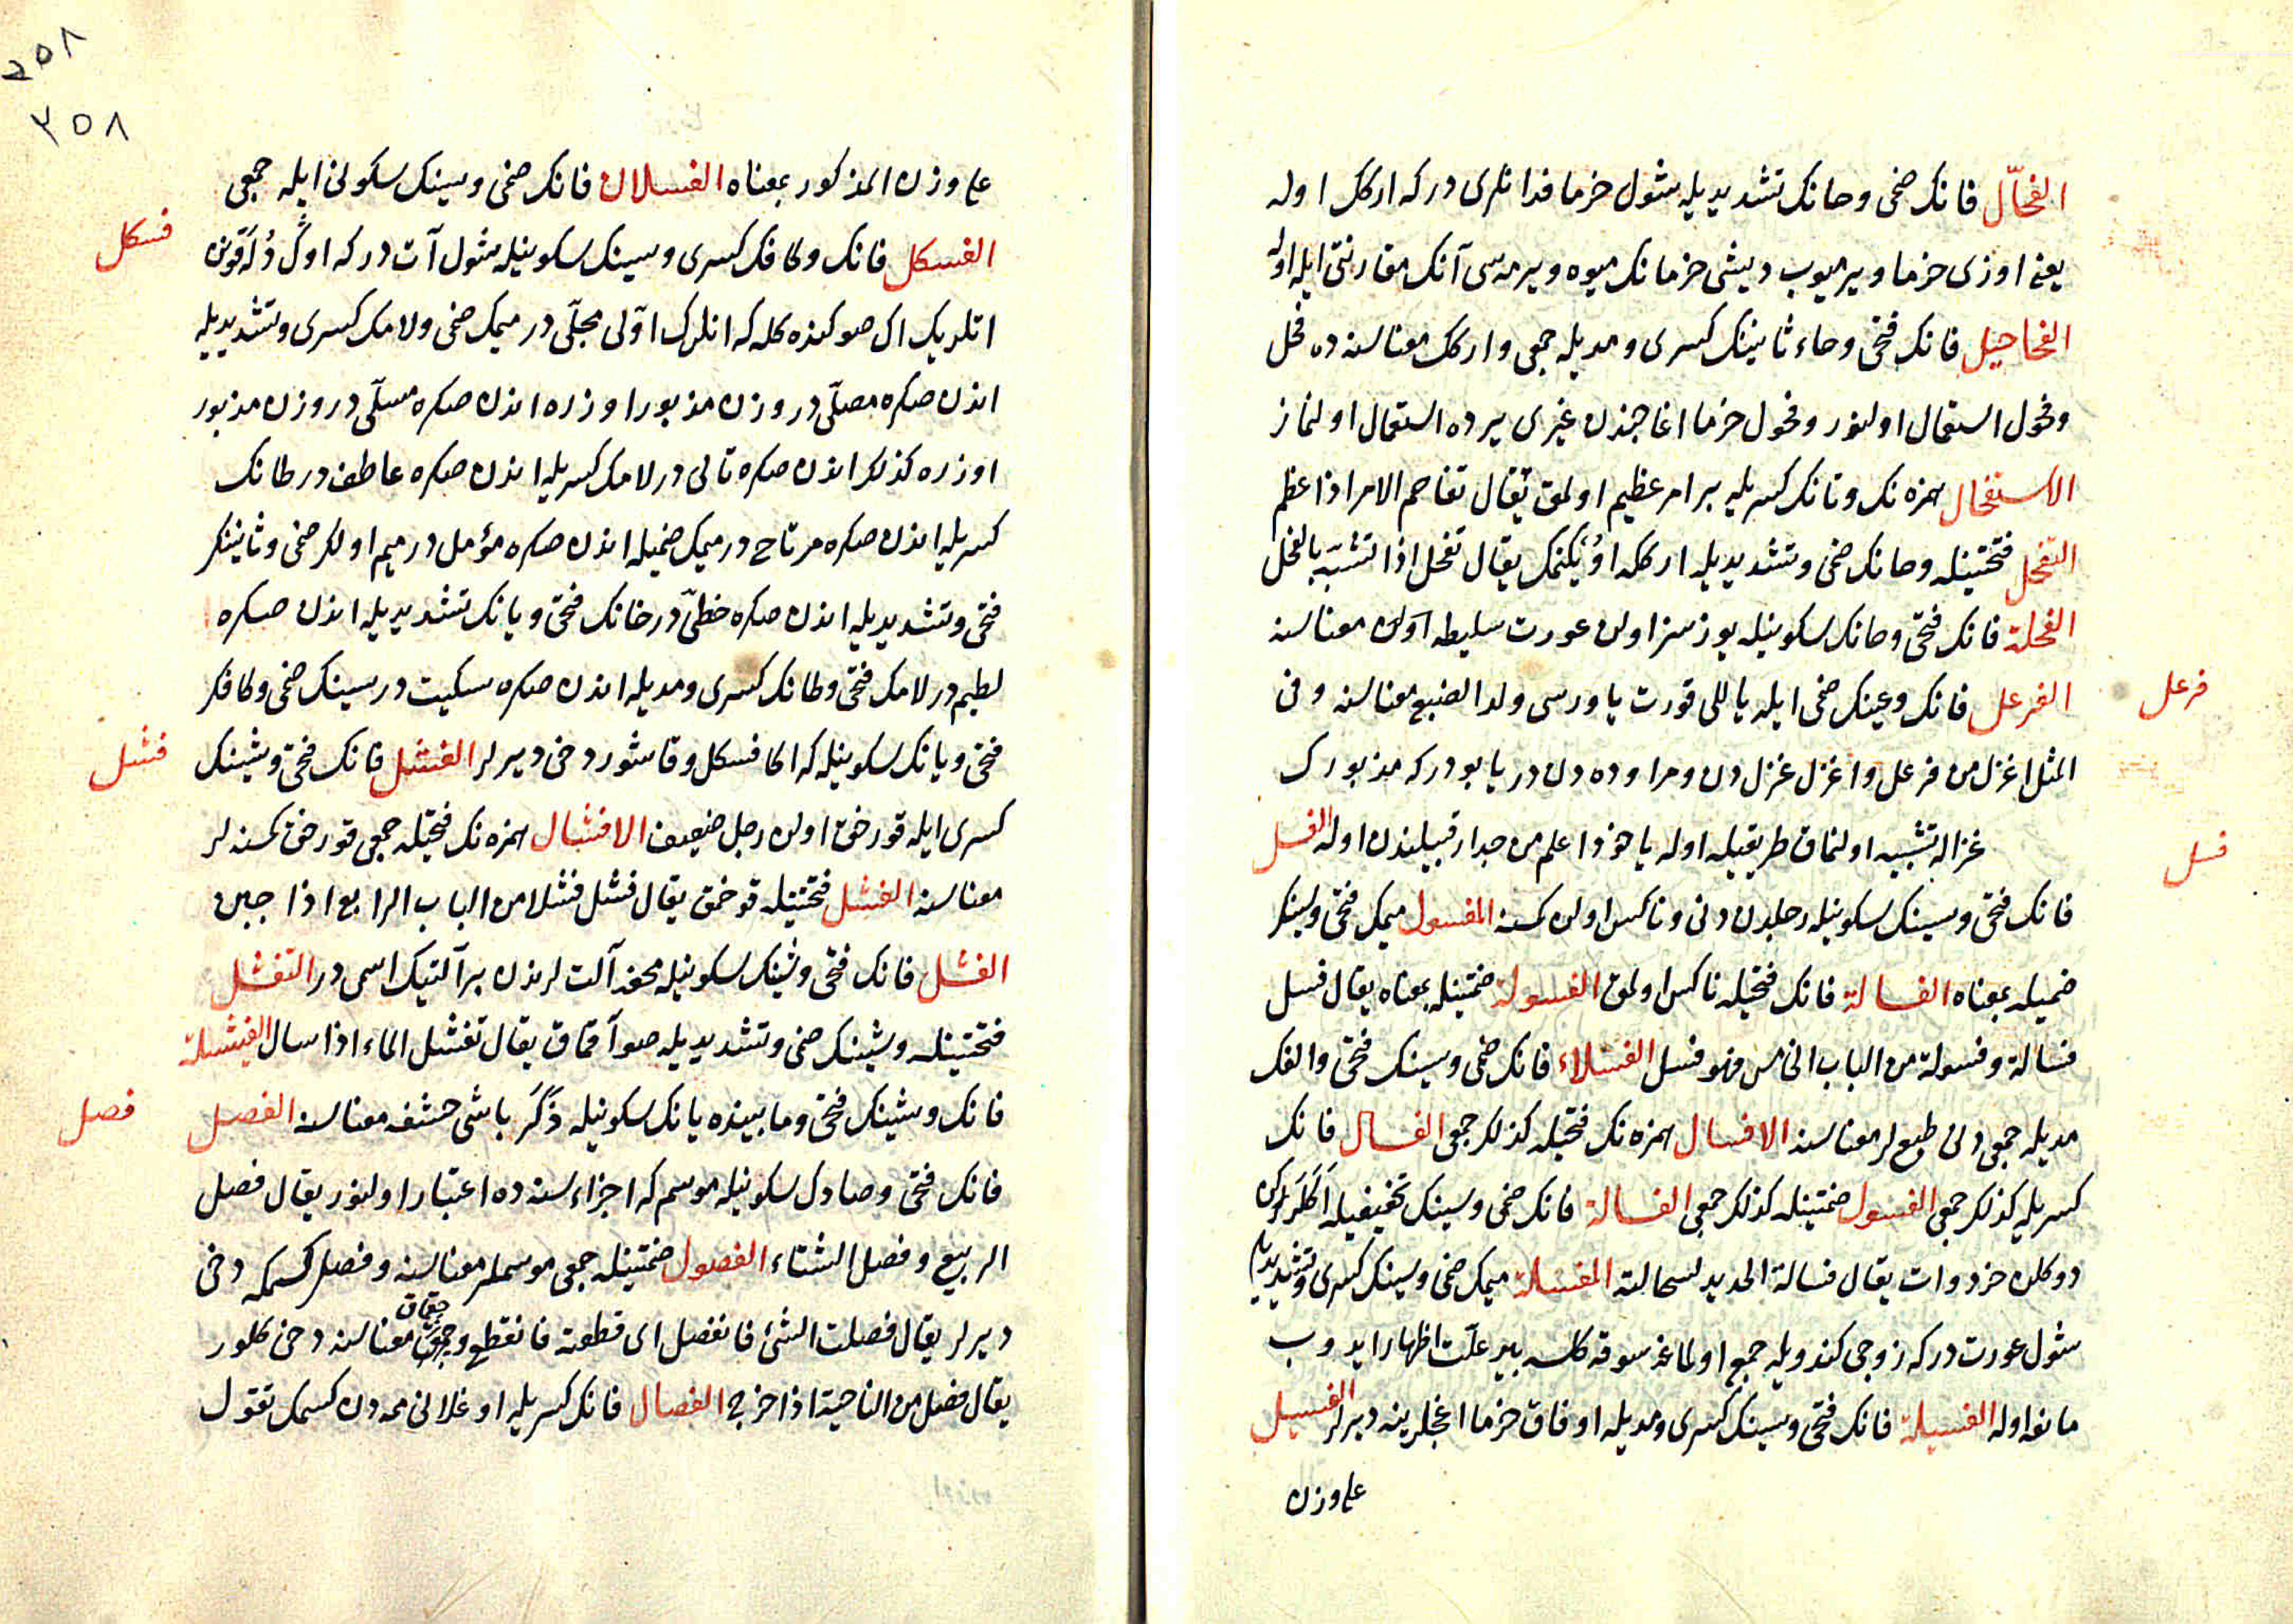 الفحّال فانك ضمی وحانك تشدیدیله شول خرما فدانلری در كه اركك اوله
یعنی اوزی خرما ویرمیوب دیشی خرمانك میوه ویرمه‌سی آنك مقارنتی ایله اوله
الفحاحیل فانك فتحی وحاء ثانینك كسری ومدیله جمعی واركك معناسنه ده فحل
وفحول استعمال اولنور وفحول خرما اغاجندن غیری یرده استعمال اولنماز
الاستفحال همزه‌نك وتانك كسریله بر امر عظیم اولمق یقال تفاحم الامر اذا عظم
التفحل فتحتینله وحانك ضمی وتشدیدیله ارككه اویكنمك یقال تفحل اذا تشبّه بالفحل
الفحلة فانك فتحی وحانك سكونیله یوزسز اولن عورت سلیطه اولن معناسنه
فرعل
الفرعل فانك وعینك ضمی ایله یاللی قورت یاوروسی ولد الضبع معناسنه وفی
المثل اغزل من فرعل واغزل غزل دن ومراوده دن در یا بودر كه مذبورك
غزاله تشبیه اولنماق طریقیله اوله یا خود اعلم من جدار قبیلندن اوله الفسل
فسل
فانك فتحی وسینك سكونیله رجلدن دنی وناكس اولن كمسنه المفسول میمك فتحی وسینك
ضمیله بمعناه الفسالة فانك فتحیله ناكس اولمق الفسولة ضمتینله بمعناه یقال فسل
فسالة وفسولة من الباب الخامس فهو فسل الفسلاء فانك ضمی وسینك فتحی والفك
مدیله جمعی دنی طبعلر معناسنه الافسال همزه‌نك فتحیله كذلك جمعی الفسال فانك
كسریله كذلك جمعی الفسول ضمتینله كذلك جمعی الفسالة فانك ضمی وسینك تخفیفیله اكلركن
دوكلن خردوات یقال فسالة الحدید لسحالته المفسلة میمك ضمی وسینك كسری وتشدیدیله
شول عورت در كه زوجی كندویله جمع اولماغه سوقه كلسه بر علت اظهار ایدوب
مانعه اوله الفسیلة فانك فتحی وسینك كسری ومدیله اوفاق خرما اغجلرینه دیرلر الفسیل
علی وزن
٢٥٨
٢٥٨
علی وزن المذكور بمعناه الفسلان فانك ضمی وسینك سكونی ایله جمعی
فسكل
الفسكل فانك وكافك كسری وسینك سكونیله شول آت در كه اوكدلّه قوین
اتلریك اك صوكنده كله كه انلرك اوّلی مجلّی در میمك ضمی ولامك كسری وتشدیدیله
اندن صكره مصلّی در وزن مذبور اوزره اندن صكره مسلّی در وزن مذبور
اوزره كذلك اندن صكره تالی در لامك كسریله اندن صكره عاطف در طانك
كسریله اندن صكره مرتاح در میمك ضمیله اندن صكره مؤمل در میم اولك ضمی وثانینك
فتحی وتشدیدیله اندن صكره خطیّ در خانك فتحی ویانك تشدیدیله اندن صكره
لطیم در لامك فتحی وطانك كسری ومدیله اندن صكره سكیت در سینك ضمی وكافك
فتحی ویانك سكونیله كه اكا فسكل وقاشور دخی دیرلر الفشل فانك فتحی وشینك
فشل
كسری ایله قورخق اولن رجل ضعیف الافشال همزه‌نك فتحیله جمعی قورخق كمسنه لر
معناسنه الفشل فتحتینله قورخمق یقال فشل فشلا من الباب الرابع اذا جبن
الفشل فانك فتحی وشینك سكونیله محفه آلت لرندن بر آلتیك اسمی در التفشل
فتحتینله وشینك ضمی وتشدیدیله صو آقماق یقال تفشل الماء اذا سال الفیشلة
فانك وشینك فتحی ومابینده یانك سكونیله ذَكَر باشی حشفه معناسنه الفصل
فصل
فانك فتحی وصادك سكونیله موسم كه اجزاء سنه ده اعتبار اولنور یقال فصل
الربیع وفصل الشتاء الفصول ضمتینله جمعی موسملر معناسنه وفصل كسمكه دخی
دیرلر یقال فصلت الشئ فانفصل ای قطعته فانقطع وچقماق معناسنه دخی كلور
یقال فصل من الناحیة اذا خرج الفصال فانك كسریله اوغلانی ممه‌دن كسمك تقول